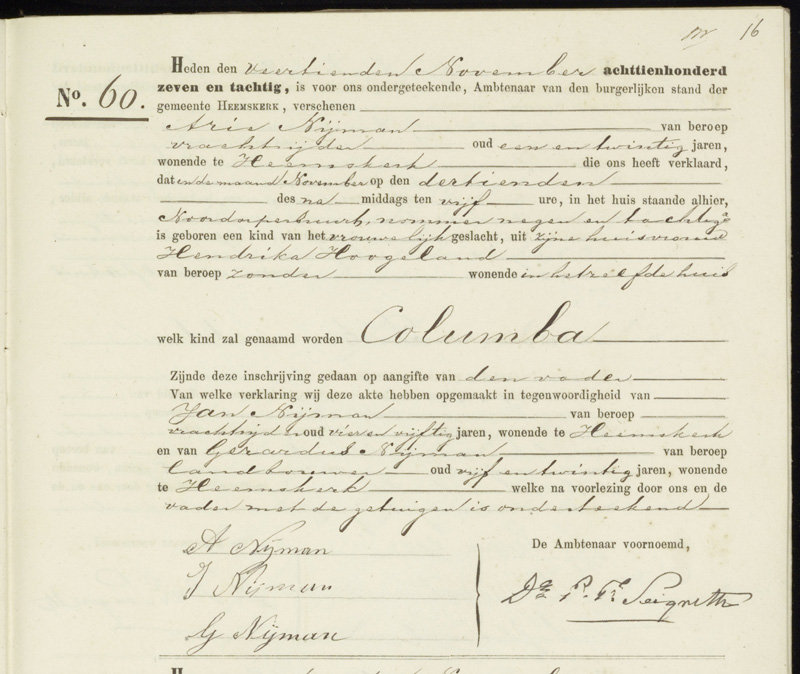 16
Nº. 60.
Heden den veertienden November achttienhonderd
zeven en tachtig, is voor ons ondergeteekende, Ambtenaar van den burgerlijken stand der
gemeente HEEMSKERK, verschenen
Arie Nijman van beroep
vrachtrijder oud een en twintig jaren,
wonende te Heemskerk die ons heeft verklaard,
dat in de maand November op den dertienden
des na middags ten vijf ure, in het huis staande alhier,
Noorddorperbuurt, nommer negen en tachtig
is geboren een kind van het vrouwelijk geslacht, uit zijne huisvrouw
Hendrika Hoogeland
van beroep zonder wonende in hetzelfde huis
welk kind zal genaamd worden Columba
Zijnde deze inschrijving gedaan op aangifte van den vader
Van welke verklaring wij deze akte hebben opgemaakt in tegenwoordigheid van
Jan Nijman van beroep
vrachtrijder oud vier en vijftig jaren, wonende te Heemskerk
en van Gerardus Nijman van beroep
landbouwer oud vijf en twintig jaren, wonende
te Heemskerk welke na voorlezing door ons en de
vader met de getuigen is onderteekend
De Ambtenaar voornoemd,
A Nijman
J Nijman
G Nijman